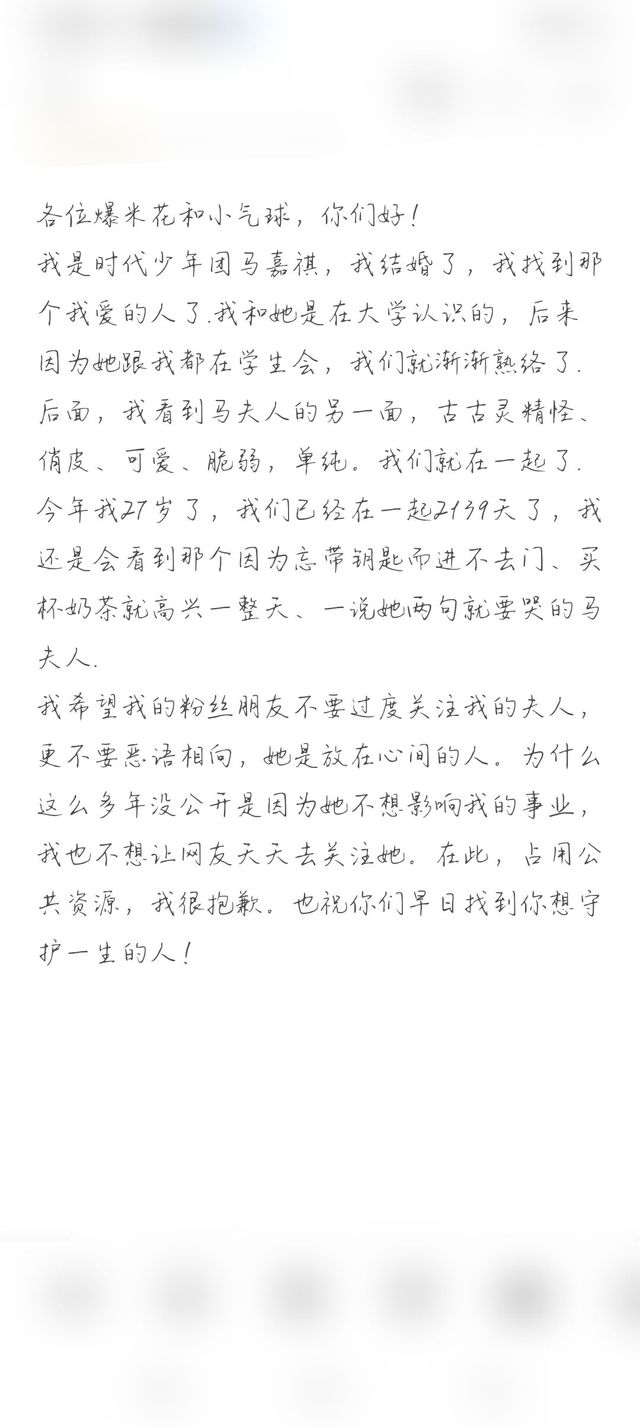 各位爆米花和小气球，你们好！
我是时代少年团马嘉祺，我结婚了，我找到那
个我爱的人了.我和她是在大学认识的，后来
因为她跟我都在学生会，我们就渐渐熟络了.
后面，我看到马夫人的另一面，古古灵精怪、
俏皮、可爱、脆弱，单纯。我们就在一起了.
今年我27岁了，我们已经在一起2139天了，我
还是会看到那个因为忘带钥匙而进不去门、买
杯奶茶就高兴一整天、一说她两句就要哭的马
夫人.
我希望我的粉丝朋友不要过度关注我的夫人，
更不要恶语相向，她是放在心间的人。为什么
这么多年没公开是因为她不想影响我的事业，
我也不想让网友天天去关注她。在此，占用公
共资源，我很抱歉。也祝你们早日找到你想守
护一生的人！